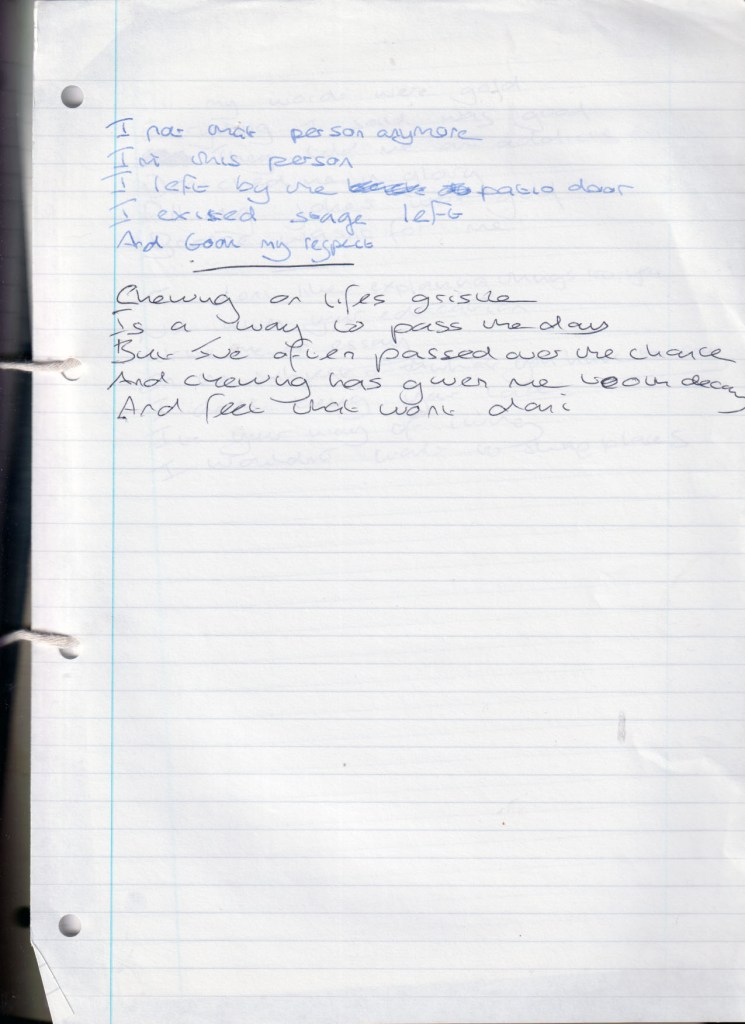 I not that person anymore
I'm this person
I left by the patio door
I exited stage left
And took my respect
Chewing on lifes gristle
Is a way to pass the days
But I've often passed over the chance
And chewing has given me tooth decay
And feet that wont